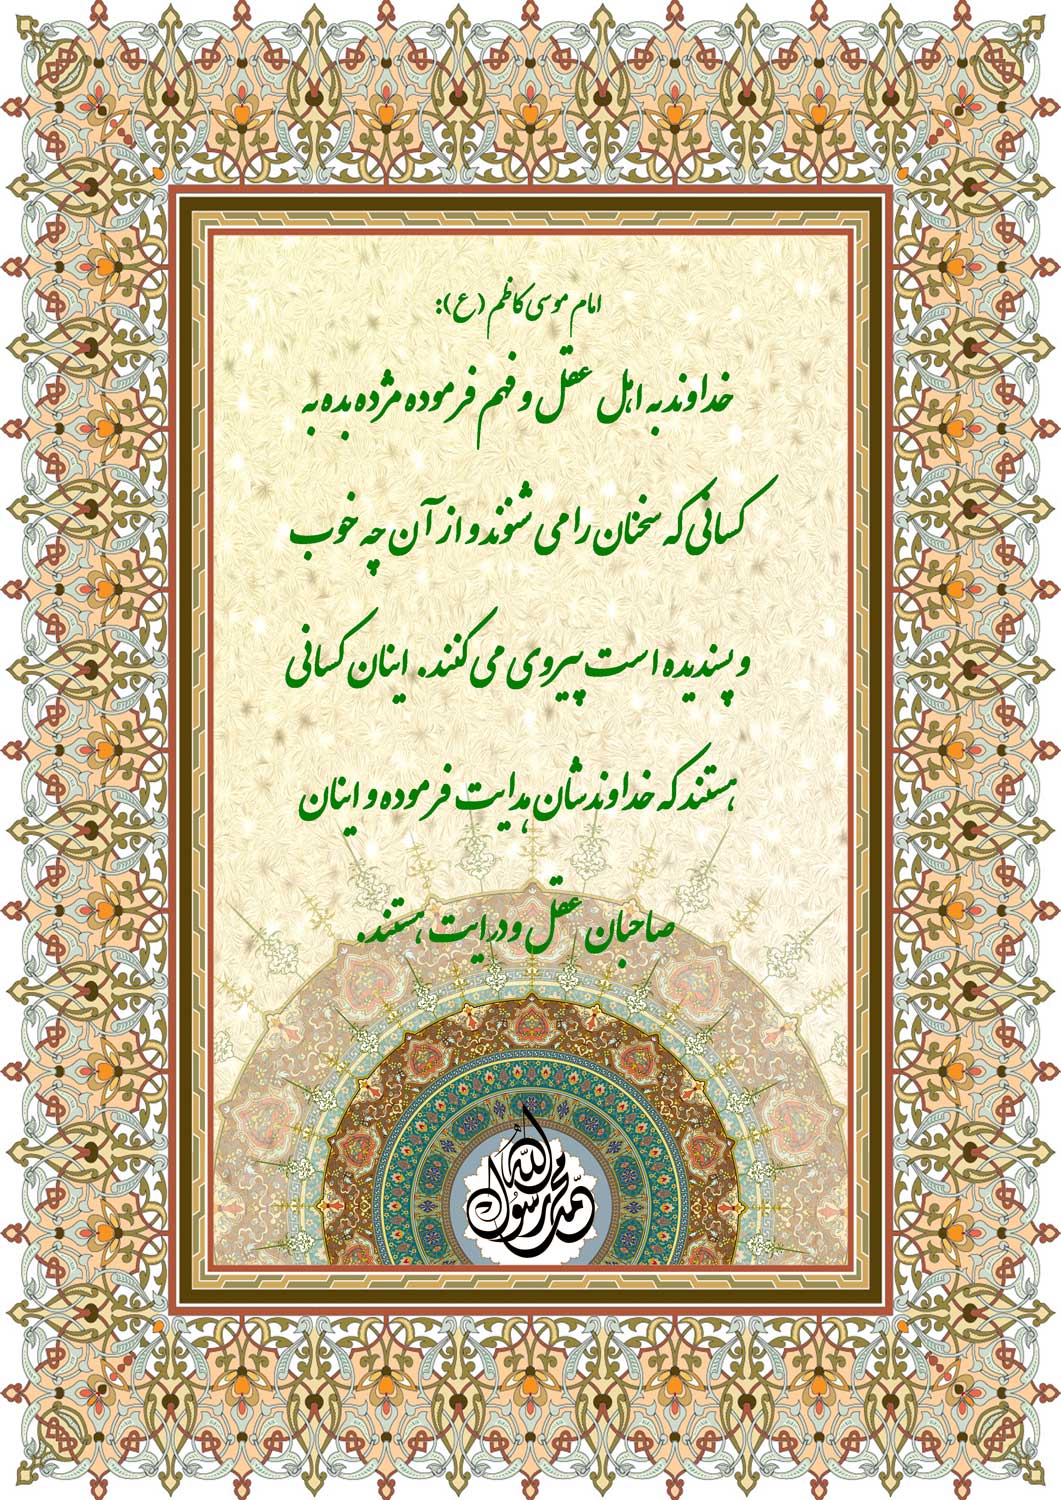 امام موسی کاظم (ع):
خداوند به اهل عقل و فهم فرموده مژده بده به
کسانی که سخنان را می شنوند و از آن چه خوب
و پسندیده است پیروی می کنند. اینان کسانی
هستند که خداوندشان هدایت فرموده و اینان
صاحبان عقل و درایت هستند.
محمد رسول الله